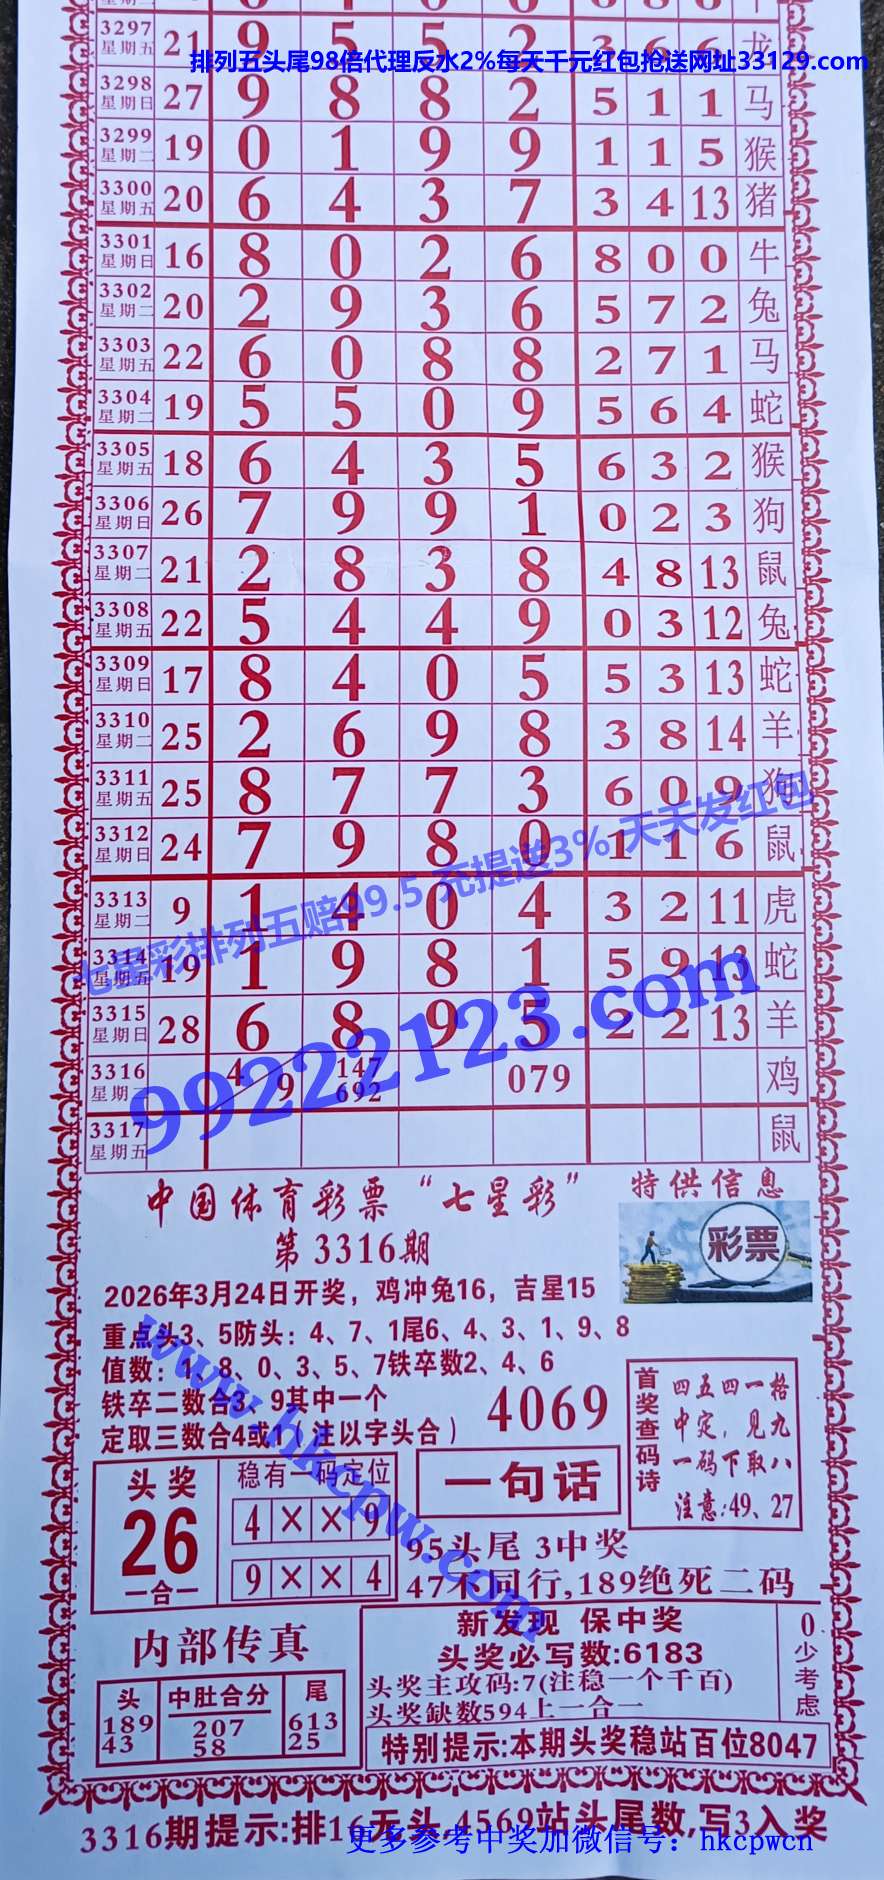 3297 星期五 21 9 5 5 2 3 6 6 龙
排列五头尾98倍代理反水2%每天千元红包抢送网址33129.com
3298 星期日 27 9 8 8 2 5 1 1 马
3299 星期二 19 0 1 9 9 1 1 5 猴
3300 星期五 20 6 4 3 7 3 4 13 猪
3301 星期日 16 8 0 2 6 8 0 0 牛
3302 星期二 20 2 9 3 6 5 7 2 兔
3303 星期五 22 6 0 8 8 2 7 1 马
3304 星期二 19 5 5 0 9 5 6 4 蛇
3305 星期五 18 6 4 3 5 6 3 2 猴
3306 星期日 26 7 9 9 1 0 2 3 狗
3307 星期二 21 2 8 3 8 4 8 13 鼠
3308 星期五 22 5 4 4 9 0 3 12 兔
3309 星期日 17 8 4 0 5 5 3 13 蛇
3310 星期二 25 2 6 9 8 3 8 14 羊
3311 星期五 25 8 7 7 3 6 0 9 狗
3312 星期日 24 7 9 8 0 1 1 6 鼠
七星彩排列五赔99.5 充提送3% 天天发红包
3313 星期二 9 1 4 0 4 3 2 11 虎
3314 星期五 19 1 9 8 1 5 9 13 蛇
3315 星期日 28 6 8 9 5 2 2 13 羊
99222123.com
3316 星期二 4 9 147 692 079 鸡
3317 星期五 鼠
中国体育彩票“七星彩” 特供信息
第3316期
彩票
2026年3月24日开奖，鸡冲兔16，吉星15
重点头3、5防头：4、7、1尾6、4、3、1、9、8
值数：1、8、0、3、5、7铁卒数2、4、6
铁卒二数合3、9其中一个
定取三数合4或1（注以字头合）
4069
首奖查码诗
四五四一格
中定，见九
一码下取八
注意:49、27
www.hkcpw.com
头奖
26
一合一
稳有一码定位
4××9
9××4
一句话
95头尾 3中奖
47不同行,189绝死二码
内部传真
头
189
43
中肚合分
207
58
尾
613
25
新发现 保中奖
头奖必写数:6183
头奖主攻码:7(注稳一个千百)
头奖缺数594上一合一
0少考虑
特别提示:本期头奖稳站百位8047
3316期提示:排16无头,4569站头尾数,写3入奖
更多参考中奖加微信号：hkcpwcn